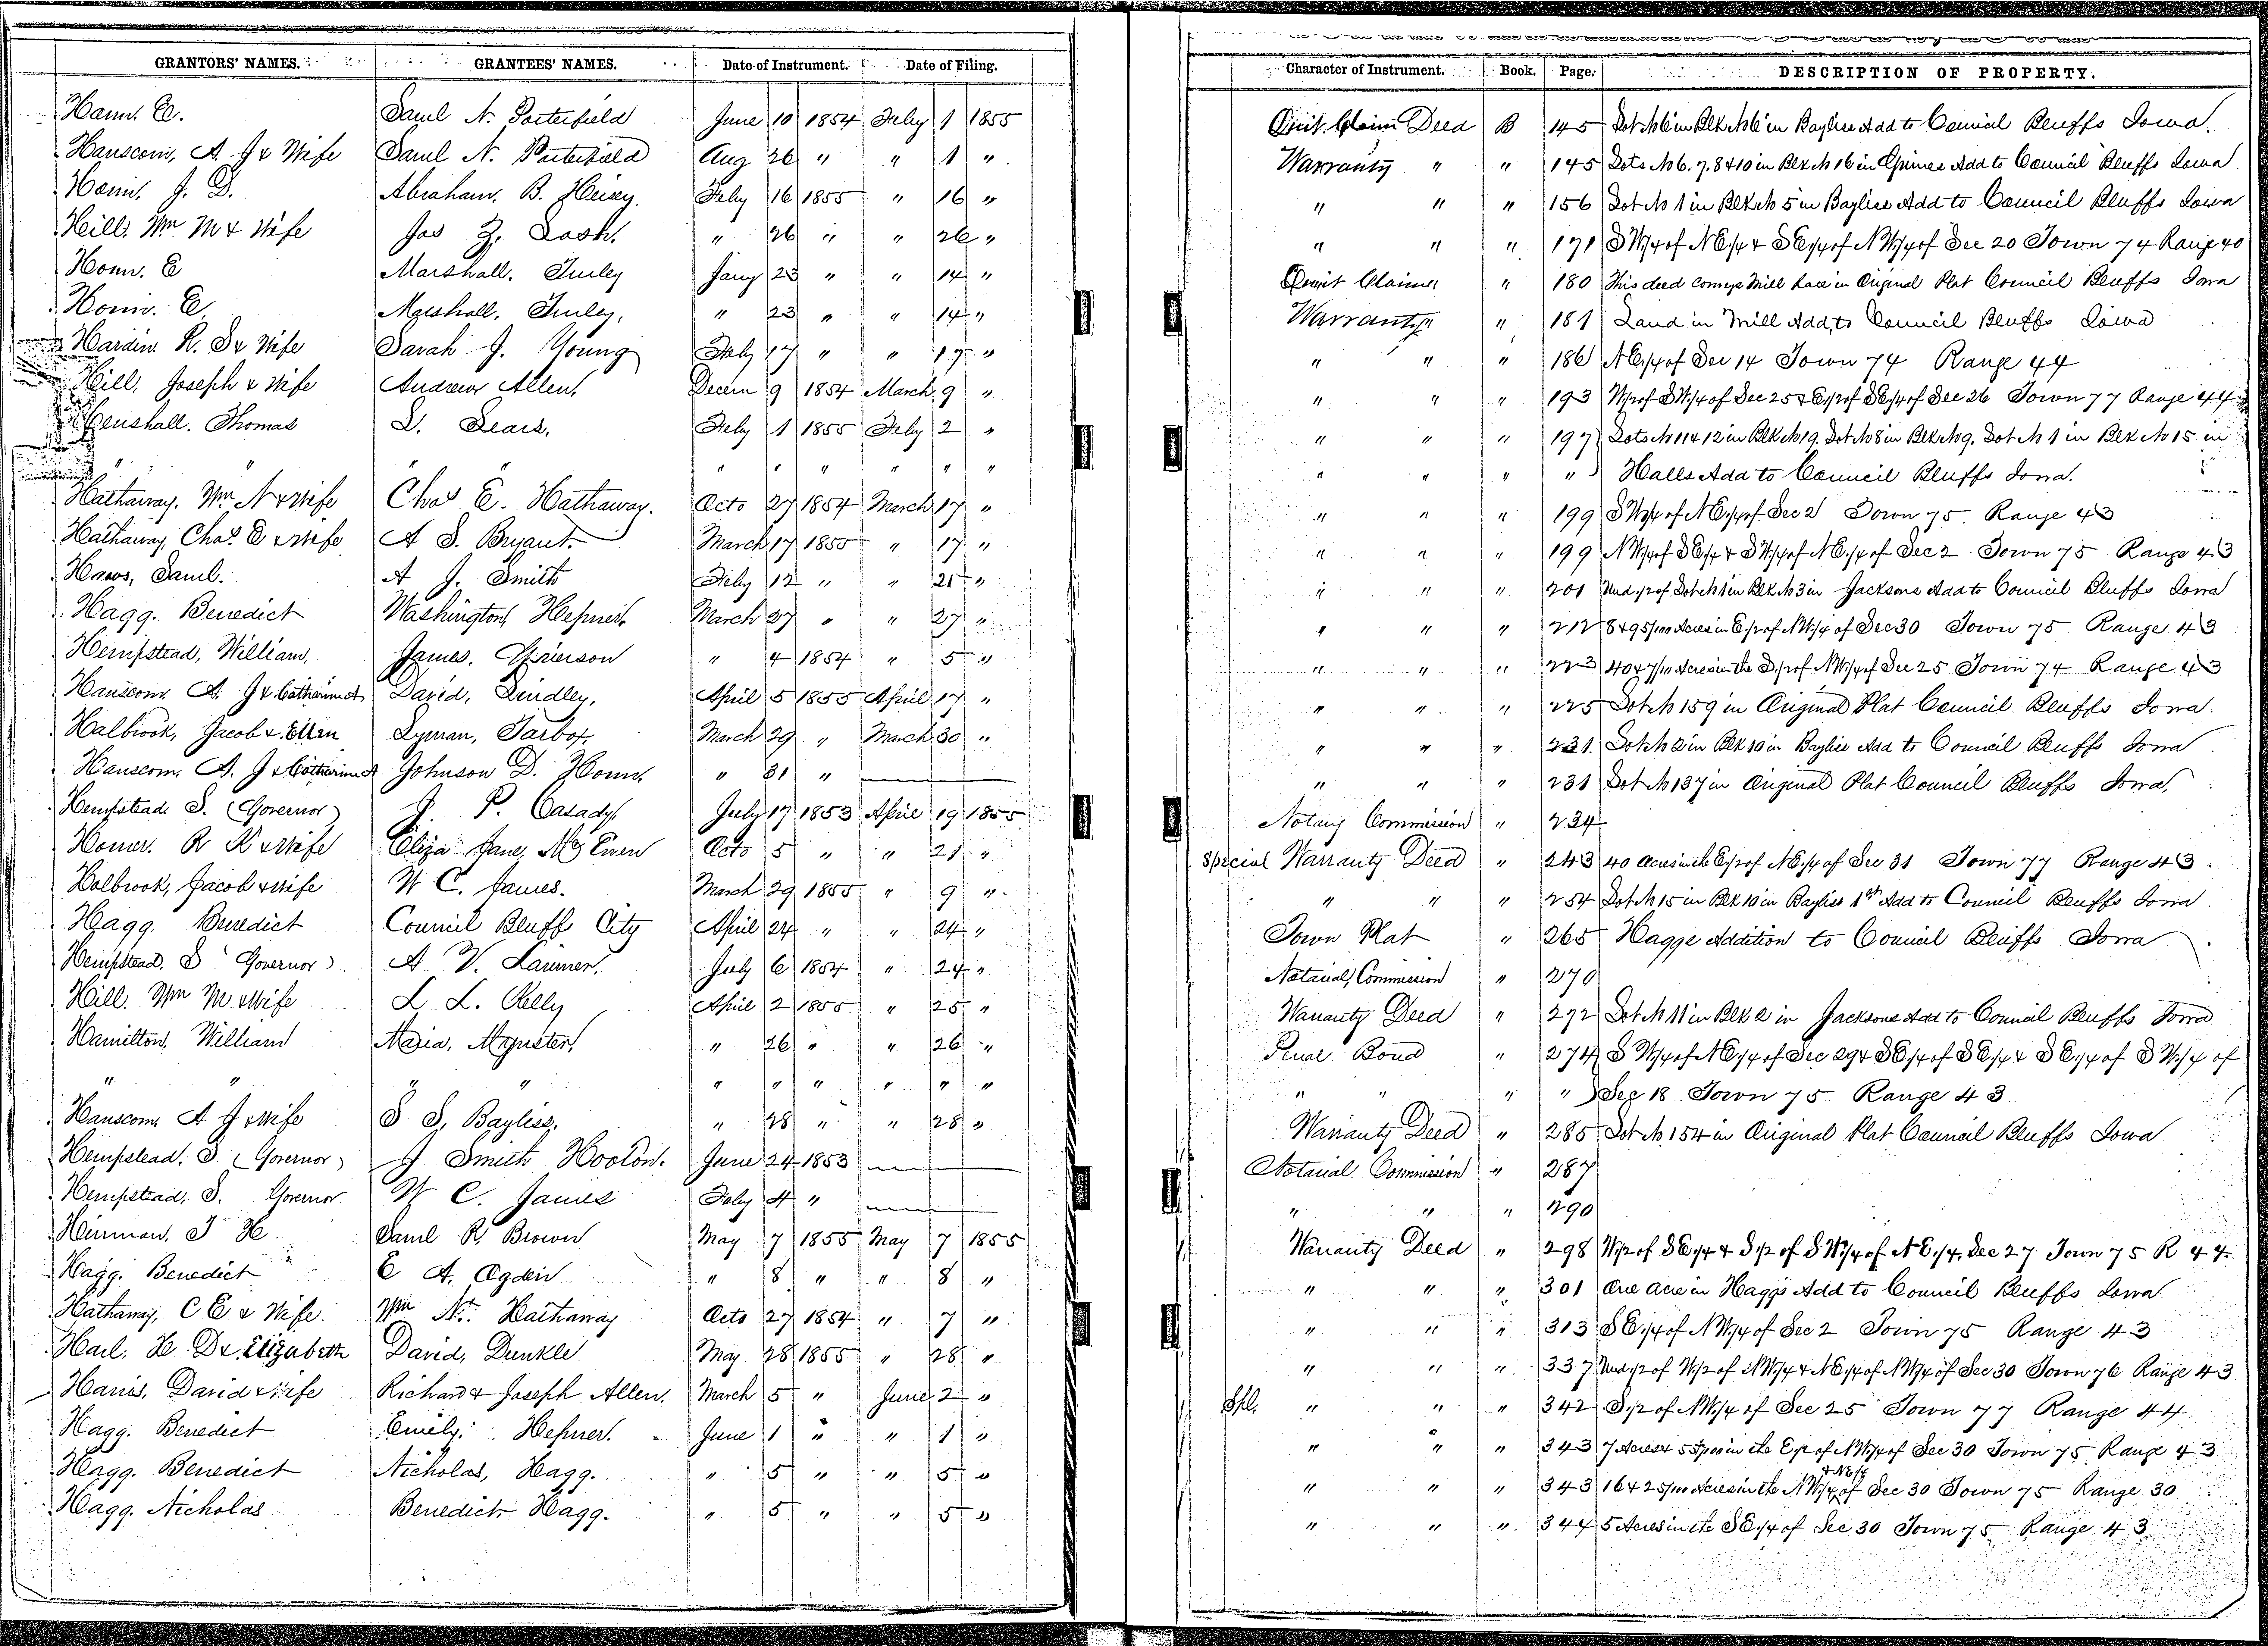 GRANTORS' NAMES. GRANTEES' NAMES. Date of Instrument. Date of Filing. Character of Instrument. Book. Page. DESCRIPTION OF PROPERTY.
Hann. E. Saml N. Porterfield June 10 1854 Feby 1 1855 Quit Claim Deed B 145 Lot No 6 in Blk No 6 in Bayliss Add to Council Bluffs Iowa.
Hanscom, A. J & Wife Saml N. Porterfield Aug 26 " " 1 " Warranty " " 145 Lots No 6. 7. 8 & 10 in Blk No 16 in Grimes Add to Council Bluffs Iowa
Honn, J. D. Abraham. B. Heisey. Feby 16 1855 " 16 " " " " 156 Lot No 1 in Blk No 5 in Bayliss Add to Council Bluffs Iowa
Hill. Wm M & Wife Jas Z. Lash. " 26 " " 26 " " " " 171 SW 1/4 of NE 1/4 & SE 1/4 of NW 1/4 of Sec 20 Town 74 Range 40
Honn. E Marshall. Turley Jany 23 " " 14 " Quit Claim " 180 This deed conveys Mill Race in Original Plat Council Bluffs Iowa
Honn. E. Marshall, Turley, " 23 " " 14 " Warranty " " 181 Land in Mill Add, to Council Bluffs Iowa
Hardin. R. S & Wife Sarah J. Young Feby 17 " " 17 " " " " 186 NE 1/4 of Sec 14 Town 74 Range 44
Hill, Joseph & Wife Andrew Allen, Decem 9 1854 March 9 " " " " 193 W 1/2 of SW 1/4 of Sec 25 & E 1/2 of SE 1/4 of Sec 26 Town 77 Range 44
Henshall. Thomas S. Sears, Feby 1 1855 Feby 2 " " " " 197 Lots No 11 & 12 in Blk No 19. Lot No 8 in Blk No 9. Lot No 1 in Blk No 15 in
" " " " " " " " " " " " Halls Add to Council Bluffs Iowa.
Hathaway. Wm. N & Wife Chas E. Hathaway. Octo 27 1854 March 17 " " " " 199 SW 1/4 of NE 1/4 of Sec 2 Town 75. Range 43
Hathaway, Chas. E & Wife A S. Bryant. March 17 1855 " 17 " " " " 199 NW 1/4 of SE 1/4 & SW 1/4 of NE 1/4 of Sec 2 Town 75 Range 43
Haws, Saml. A J. Smith Feby 12 " " 21 " " " " 201 Und 1/2 of Lot No 1 in Blk No 3 in Jacksons Add to Council Bluffs Iowa
Hagg. Benedict Washington Hepner. March 27 " " 27 " " " " 212 8 & 95/100 Acres in E 1/2 of NW 1/4 of Sec 30 Town 75 Range 43
Hempstead, William, James. Grierson " 4 1854 " 5 " " " " 223 40 & 7/10 Acres in the S 1/2 of NW 1/4 of Sec 25 Town 74 Range 43
Hanscom A. J & Catharine A David, Lindley, April 5 1855 April 17 " " " " 225 Lot No 159 in Original Plat Council Bluffs Iowa.
Halbrook, Jacob & Ellen Lyman, Tarbox, March 29 " March 30 " " " " 231 Lot No 2 in Blk 10 in Bayliss Add to Council Bluffs Iowa
Hanscom, A. J & Catharine A Johnson D. Honn. " 31 " " " " 231 Lot No 137 in Original Plat Council Bluffs Iowa.
Hempstead S. (Governor) J. P. Casady July 17 1853 April 19 1855 Notary Commission " 234
Homer. R K & Wife Eliza Jane, Mc Ewen Octo 5 " " 21 " Special Warranty Deed " 243 40 acres in the E 1/2 of NE 1/4 of Sec 31 Town 77 Range 43
Holbrook, Jacob & Wife W C. James. March 29 1855 " 9 " " " " 254 Lot No 15 in Blk 10 in Bayliss 1st Add to Council Bluffs Iowa
Hagg, Benedict Council Bluff City April 24 " " 24 " Town Plat " 265 Haggs Addition to Council Bluffs Iowa
Hempstead. S Governor) A V. Larimer. July 6 1854 " 24 " Notarial Commission " 270
Hill. Wm M & Wife L L. Kelly April 2 1855 " 25 " Warranty Deed " 272 Lot No 11 in Blk 2 in Jacksons Add to Council Bluffs Iowa
Hamilton, William Maria, " 26 " " 26 " Penal Bond " 274 SW 1/4 of NE 1/4 of Sec 29 & SE 1/4 of SE 1/4 & SE 1/4 of SW 1/4 of
" " " " " " " " " " " " " Sec 18 Town 75 Range 43
Hanscom, A J & Wife S S. Bayliss. " 28 " " 28 " Warranty Deed " 285 Lot No 154 in Original Plat Council Bluffs Iowa
Hempstead. S (Governor) J Smith Hooton. June 24 1853 Notarial Commission " 287
Hempstead, S. Governor W C. James Feby 4 " " " " 290
Hinman. J H Saml R. Brown May 7 1855 May 7 1855 Warranty Deed " 298 W 1/2 of SE 1/4 & S 1/2 of SW 1/4 of NE 1/4, Sec 27 Town 75 R 44
Hagg. Benedict E A. Ogden " 8 " " 8 " " " " 301 One acre in Haggs Add to Council Bluffs Iowa
Hathaway, C E & Wife. Wm N. Hathaway Octo 27 1854 " 7 " " " " 313 SE 1/4 of NW 1/4 of Sec 2 Town 75 Range 43
Harl, H D & Elizabeth David, Dunkle May 28 1855 " 28 " " " " 337 Und 1/2 of W 1/2 of NW 1/4 & NE 1/4 of NW 1/4 of Sec 30 Town 76 Range 43
Harris, David & Wife Richard & Joseph Allen, March 5 " June 2 " Spl. " " " 342 S 1/2 of NW 1/4 of Sec 25 Town 77 Range 44
Hagg. Benedict Emily. Hepner. June 1 " " 1 " " " " 343 7 Acres & in the E 1/2 of NW 1/4 of Sec 30 Town 75 Range 43
Hagg. Benedict Nicholas, Hagg. " 5 " " 5 " " " " 343 16 & 25/100 Acres in the NW 1/4 & NE 1/4 of Sec 30 Town 75 Range 30
Hagg. Nicholas Benedict Hagg. " 5 " " 5 " " " " 344 5 Acres in the SE 1/4 of Sec 30 Town 75 Range 43